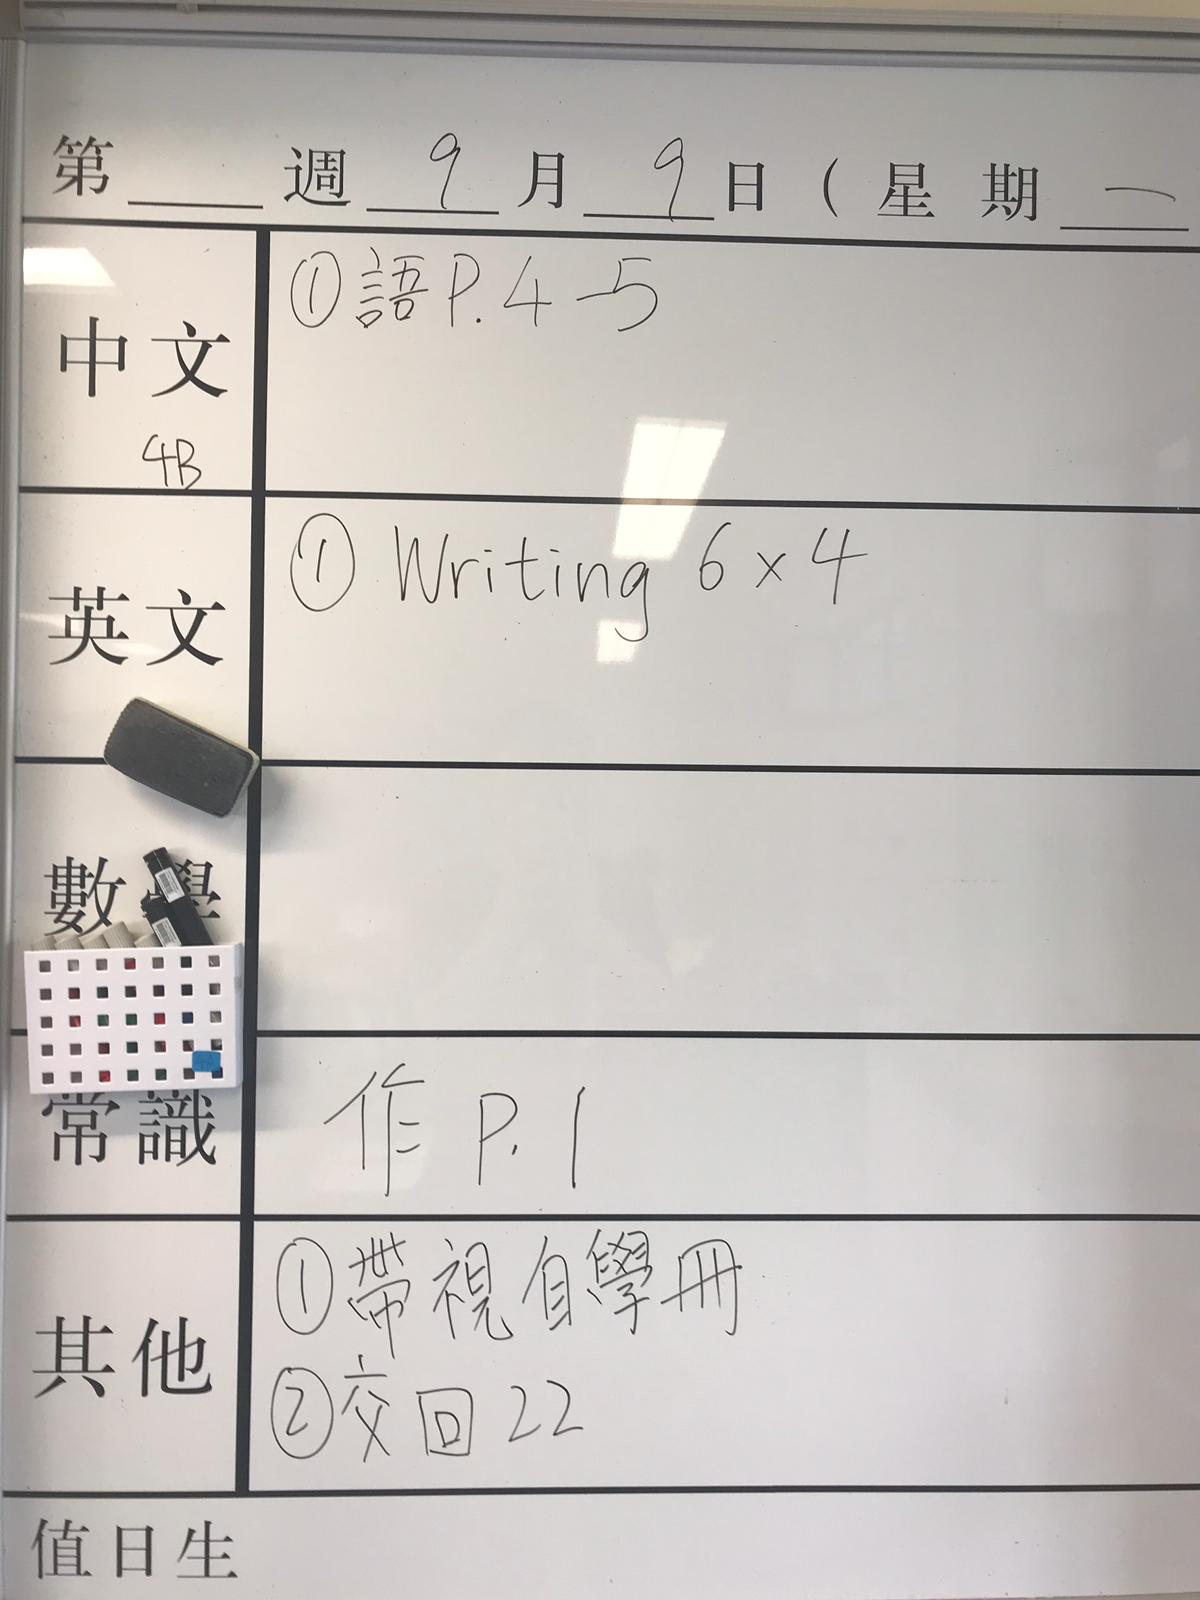 第 週 9 月 9 日 ( 星 期 一
中文 ①語P.4-5
4B
英文 ① Writing 6×4
數學
常識 作 P.1
其他 ①帶視自學冊
②交回22
值日生